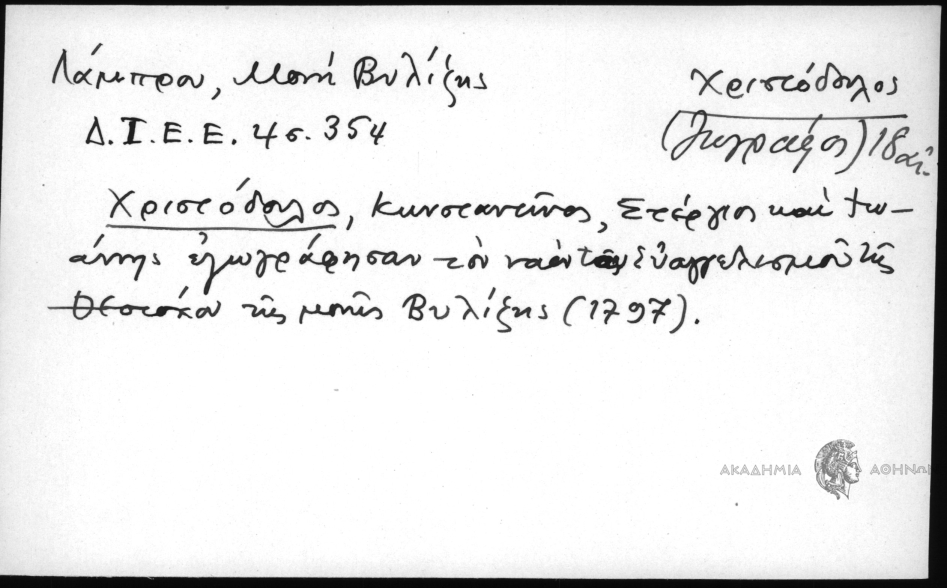 Λάμπρου, Μονή Βυλίζης
Δ.Ι.Ε.Ε. 4 σ. 354
Χριστόδουλος
(ζωγράφος) 18 αἰ.
Χριστόδουλος, Κωνσταντῖνος, Στέργιος καὶ Ἰω-
άννης ἐζωγράφησαν τὸν ναὸν τοῦ Εὐαγγελισμοῦ τῆς
Θεοτόκου τῆς μονῆς Βυλίζης (1797).
ΑΚΑΔΗΜΙΑ ΑΘΗΝΩΝ